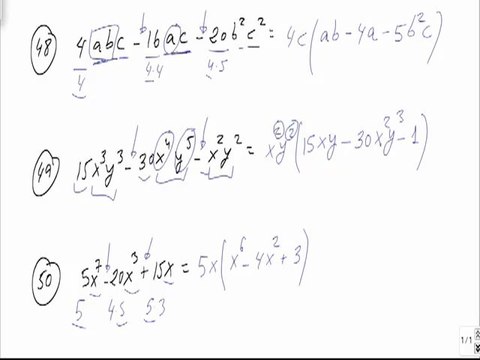 48 4abc - 16ac - 20b²c² = 4c(ab - 4a - 5b²c)
4 4·4 4·5
49 15x³y³ - 30x⁴y⁵ - x²y² = x²y²(15xy - 30x²y³ - 1)
50 5x⁷ - 20x³ + 15x = 5x(x⁶ - 4x² + 3)
5 4 5 5 3
1/1